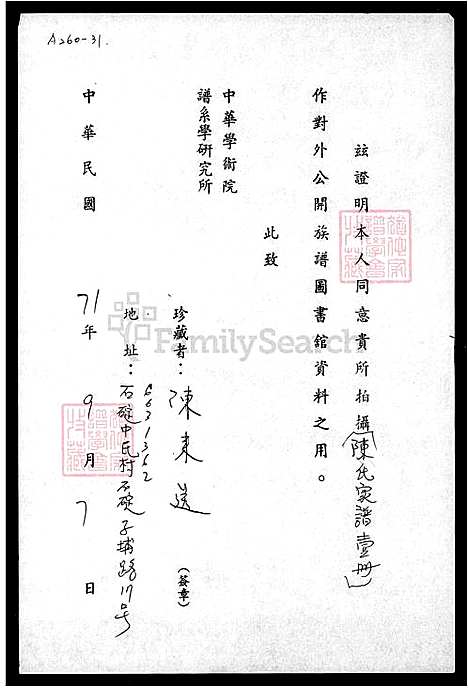 A260-31.
茲證明本人同意貴所拍攝（陳氏家譜壹冊）
作對外公開族譜圖書舘資料之用。
此致
中華學術院
譜系學研究所
珍藏者：陳來送（簽章）
6631362
地址：石碇中民村石碇子埔路17号
中華民國71年9月7日
FamilySearch